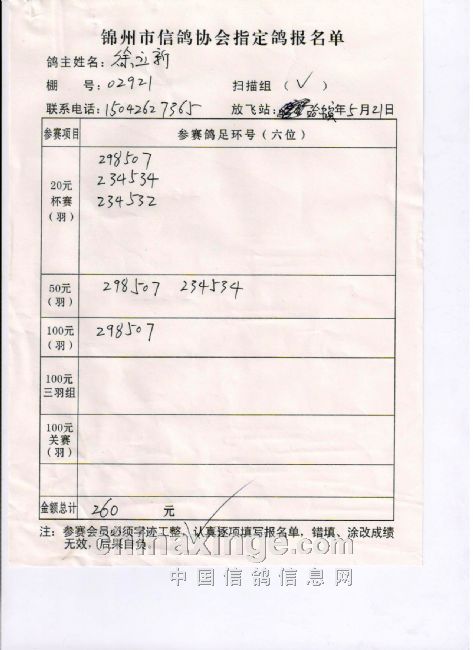 锦州市信鸽协会指定鸽报名单
鸽主姓名：徐立新
棚　号：02921　扫描组（√）
联系电话：15042627365　放飞站：年5月21日
参赛项目　参赛鸽足环号（六位）
20元
杯赛
（羽）
298507
234534
234532
50元
（羽）
298507　234534
100元
（羽）
298507
100元
三羽组
100元
关赛
（羽）
金额总计　260　元
注：参赛会员必须字迹工整，认真逐项填写报名单，错填、涂改成绩
无效，后果自负。
chinaxinge.com
中国信鸽信息网